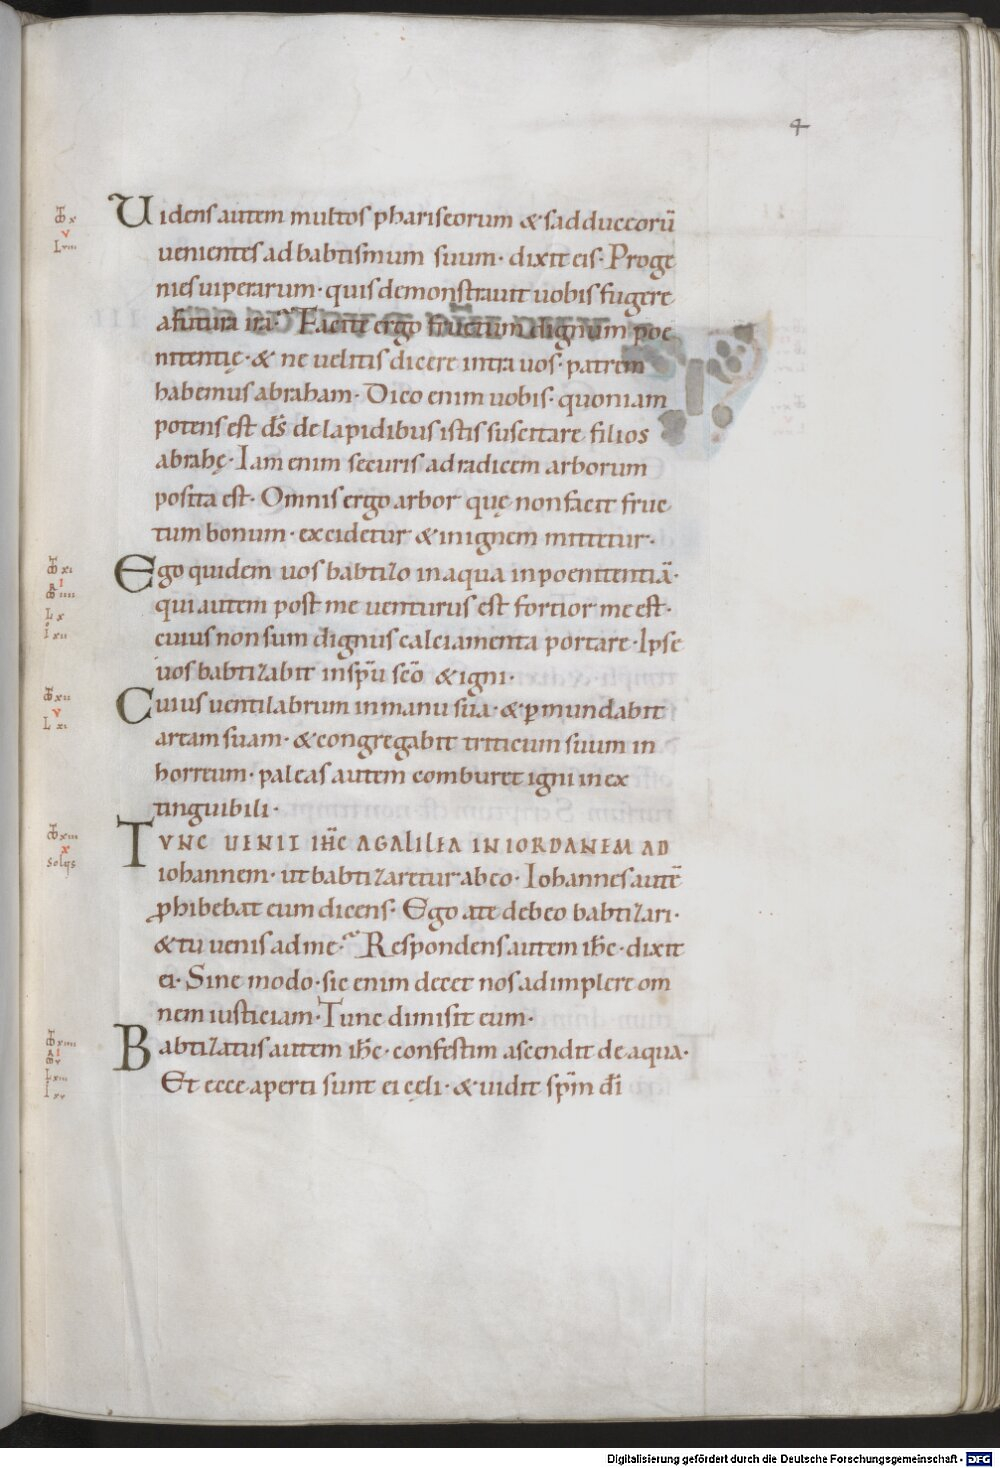 4
Uidens autem multos phariseorum & sadduceorū
uenientes ad babtismum suum · dixit eis · Proge
nies uiperarum · quis demonstrauit uobis fugere
a futura ira · Facite ergo fructum dignum poe
nitentię · & ne uelitis dicere intra uos · patrem
habemus abraham · Dico enim uobis · quoniam
potens est ds̄ de lapidibus istis suscitare filios
abrahę · Iam enim securis ad radicem arborum
posita est · Omnis ergo arbor quę non facit fruc
tum bonum · excidetur & in ignem mittetur ·
Ego quidem uos babtizo in aqua in poenitentiā ·
qui autem post me uenturus est fortior me est ·
cuius non sum dignus calciamenta portare · Ipse
uos babtizabit in spū scō & igni ·
Cuius uentilabrum in manu sua · & ꝑmundabit
aream suam · & congregabit triticum suum in
horreum · paleas autem comburet igni inex
tinguibili ·
TUNC UENIT IHC A GALILEA IN IORDANEM AD
iohannem · ut babtizaretur ab eo · Iohannes autē
ꝓhibebat eum dicens · Ego a te debeo babtizari ·
& tu uenis ad me · Respondens autem ihc · dixit
ei · Sine modo · sic enim decet nos adimplere om
nem iusticiam · Tunc dimisit eum ·
Babtizatus autem ihc · confestim ascendit de aqua ·
Et ecce aperti sunt ei cęli · & uidit spm̄ dī
x
v
Lviii
xi
I
iiii
L x
I xii
xii
v
L xi
xiii
x
solus
xiiii
I
v
L xiii
I xv
Digitalisierung gefördert durch die Deutsche Forschungsgemeinschaft - DFG